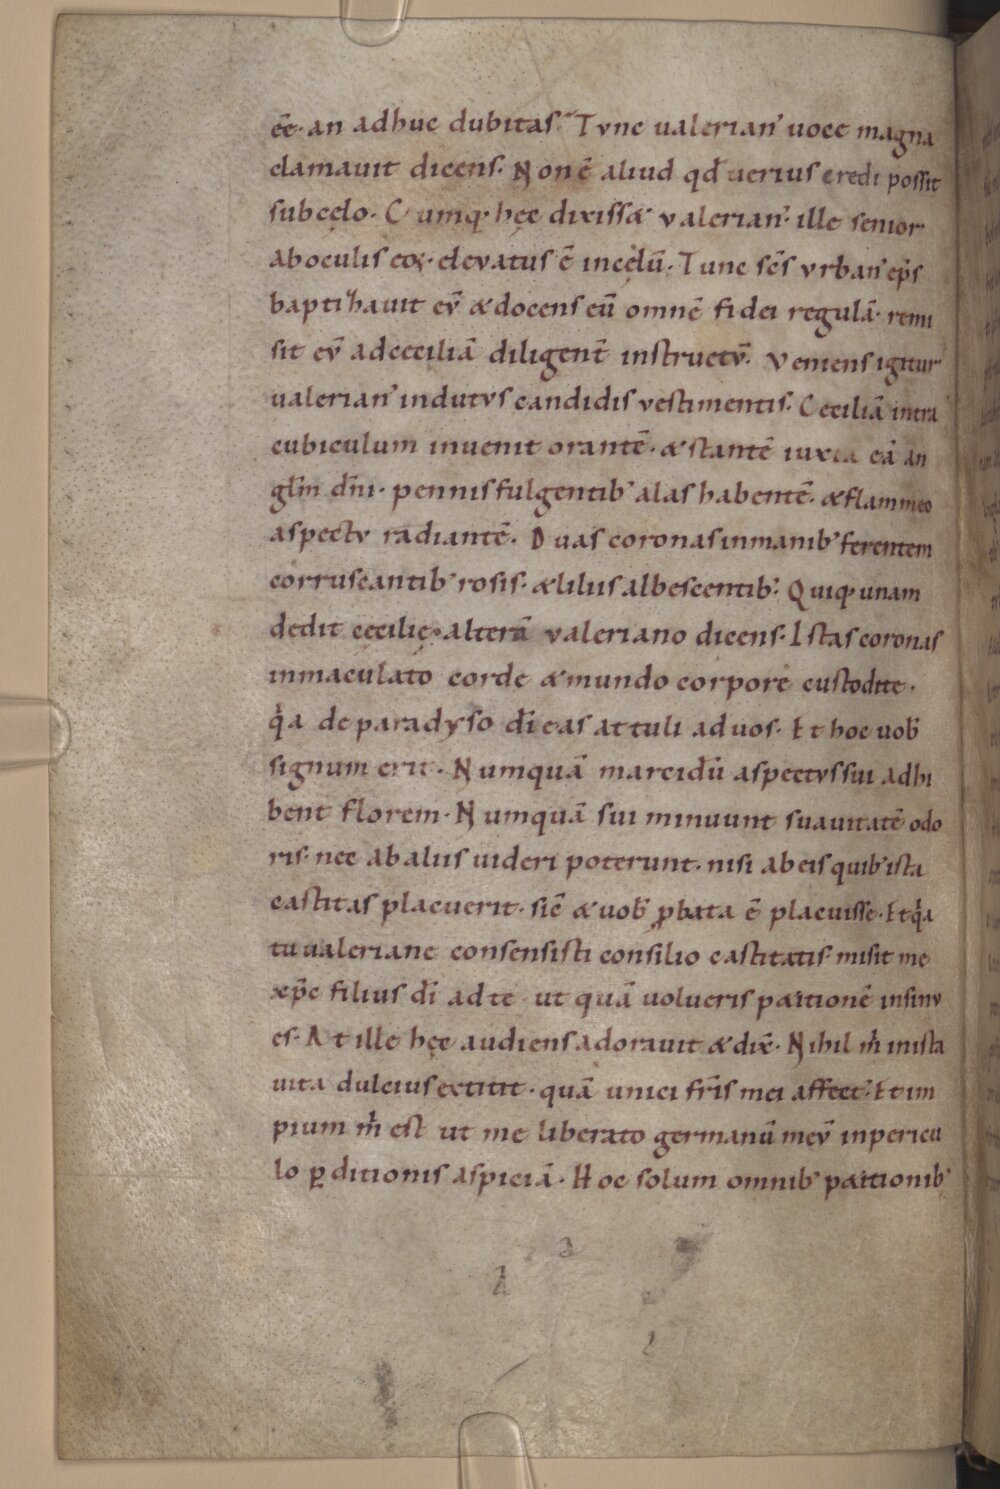 eē· an adhuc dubitas. Tunc ualerian᾽ uoce magna
clamauit dicens. Non ē aliud qđ uerius credi possit
sub cęlo. Cumq; hęc dixiss& valerian᾽. ille senior
ab oculis eoꝝ· elevatus ē in cęlū. Tunc sc̄s vrban᾽ ep̄s
baptizauit eū & docens eū omnē fidei regulā· remi
sit eū ad ceciliā diligent̄ instructū. Veniens igitur
ualerian᾽ indutus candidis vestimentis. Ceciliā intra
cubiculum inuenit orantē· & stantē iuxta eā an
gl̄m dn̄i· pennis fulgentib᾽ alas habentē. & flammeo
aspectu radiantē. Duas coronas in manib᾽ ferentem
corruscantib᾽ rosis· & liliis albescentib᾽. Quiq; unam
dedit cecilię· alterā valeriano dicens. Istas coronas
inmaculato corde & mundo corpore custodite.
q̇a de paradyso dī eas attuli ad uos. Et hoc uob̄
signum erit. Numquā marcidū aspectus sui adhi
bent florem. Numquā sui minuunt suauitatē odo
ris. nec ab aliis uideri poterunt. nisi ab eis quib᾽ ista
castitas placuerit. sic̄ & uob̄ ꝓbata ē placuisse. Et q̇a
tu ualeriane consensisti consilio castitatis. misit me
xp̄c filius dī ad te ut quā uolueris p&itionē insinu
es. At ille hęc audiens adorauit & dix̄. Nihil m̄ in ista
uita dulcius extitit. quā unici fr̄is mei affect᾽. Et im
pium m̄ est ut me liberato germanū meū in pericu
lo ꝑditionis aspiciā. Hoc solum omnib᾽ p&itionib᾽